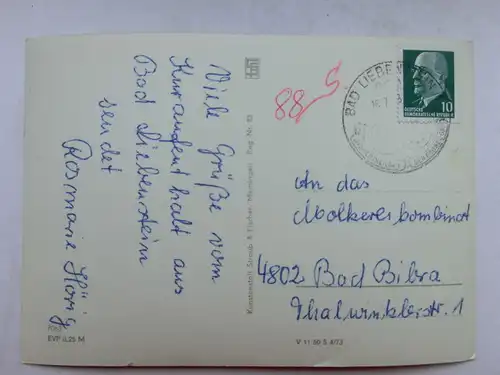 Viele Grüße vom
Kuraufenthalt aus
Bad Liebenstein
sendet
Rosmarie König
EVP 0,25 M
Kunstanstalt Straub & Fischer, Meiningen
88
BAD LIEBEN
10
DEUTSCHE
DEMOKRATISCHE REPUBLIK
An das
Molkereikombinat
4802 Bad Bibra
Thalwinklerstr. 1
V 11 50 S 4/73